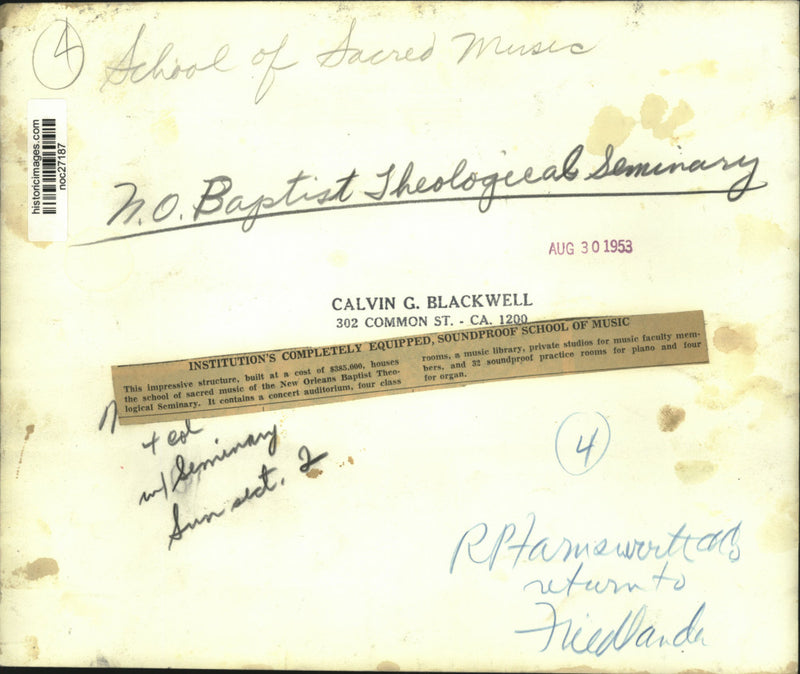 4
School of Sacred Music
historicimages.com
noc27187
N.O. Baptist Theological Seminary
AUG 30 1953
CALVIN G. BLACKWELL
302 COMMON ST. - CA. 1200
INSTITUTION'S COMPLETELY EQUIPPED, SOUNDPROOF SCHOOL OF MUSIC
This impressive structure, built at a cost of $385,000, houses
the school of sacred music of the New Orleans Baptist Theo-
logical Seminary. It contains a concert auditorium, four class
rooms, a music library, private studios for music faculty mem-
bers, and 32 soundproof practice rooms for piano and four
for organ.
4 col
w/ Seminary
Sun sect. 2
4
RP Farnsworth
return to